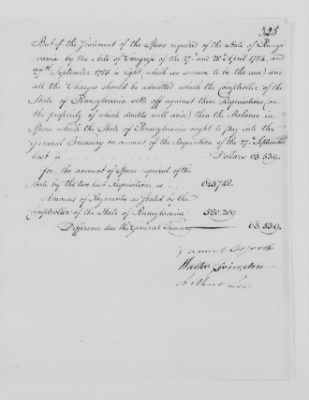 But if the Statement of the Specie required of the State of Pennsyl
vania by the Acts of Congress of the 27th and 28th April 1784, and
27th September 1785 is right, (which we conceive to be the case) and
all the Charges should be admitted which the comptroller of the
State of Pennsylvania setts off against these Requisitions, (on
the propriety of which doubts will arise) then the Balance in
Specie which the State of Pennsylvania ought to Pay into the
General Treasury on account of the Requisition of the 27th September
last is Dollars 63.539.
For the amount of Specie required of the
State by the two last Requisitions, is
Amount of Payments as stated by the
Comptroller of the State of Pennsylvania
Difference due the General Treasury 63.539.
Samuel Osgood
Walter Livingston
Arthur Lee